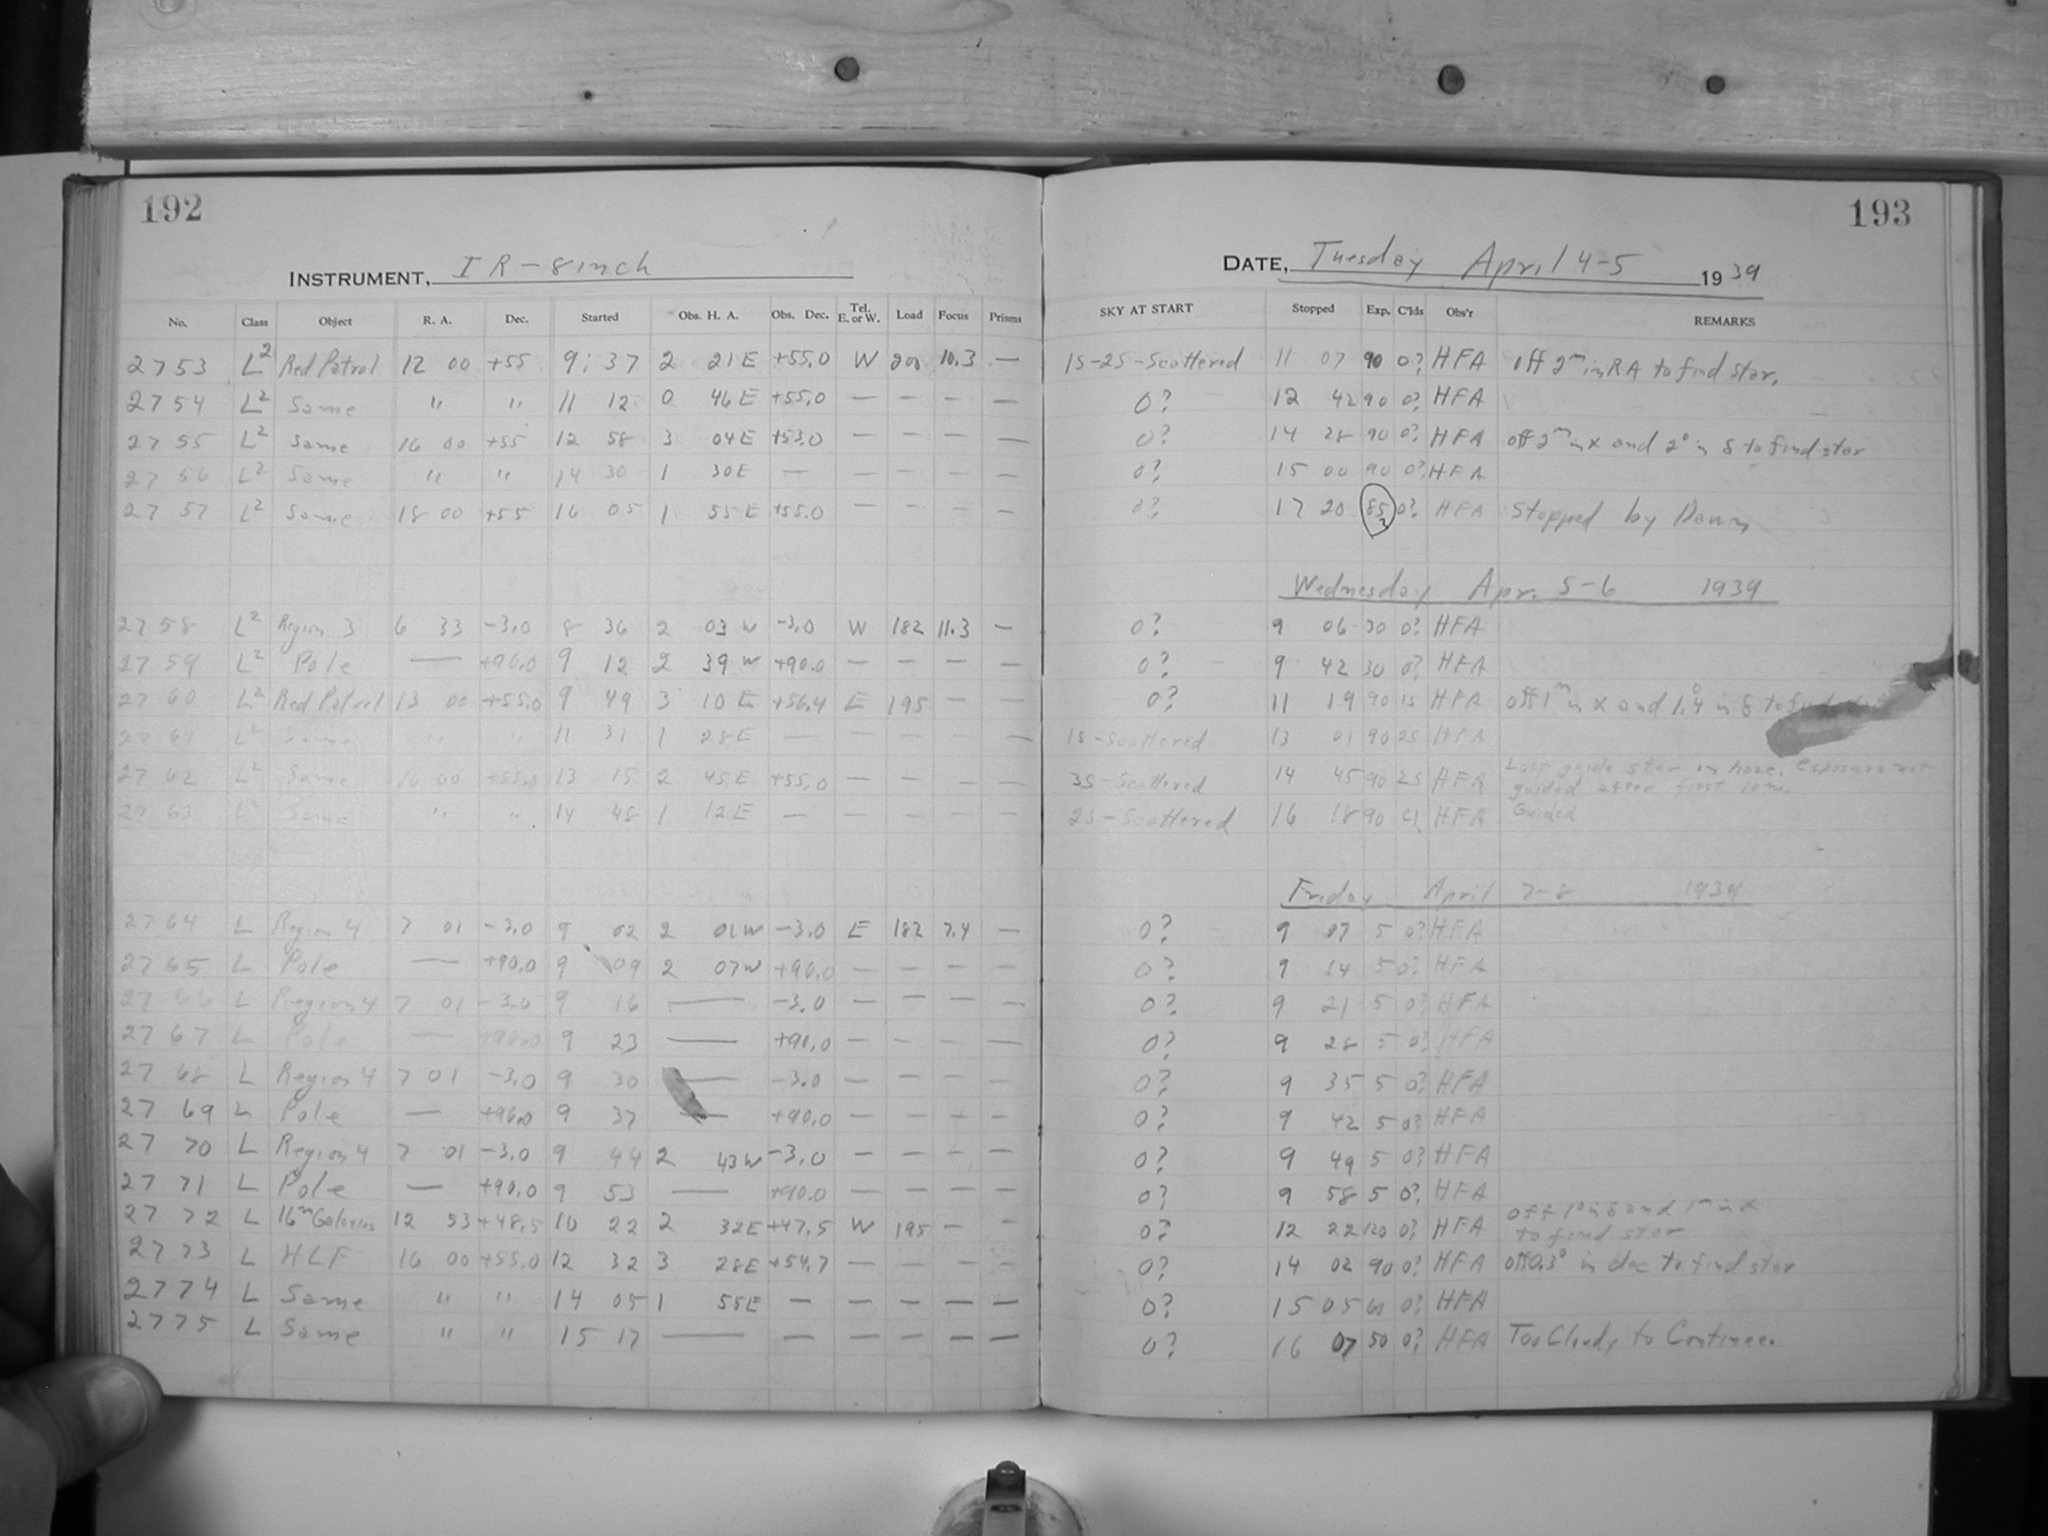 192
INSTRUMENT, IR-8inch
No. Class Object R. A. Dec. Started Obs. H. A. Obs. Dec. Tel. E. or W. Load Focus Prisms
2753 L² Red Patrol 12 00 +55 9:37 2 21E +55.0 W 200 10.3 —
2754 L² Same " " 11 12 0 46E +55.0 — — — —
2755 L² Same 16 00 +55 12 58 3 04E +53.0 — — — —
2756 L² Same " " 14 30 1 30E — — — — —
2757 L² Same 18 00 +55 16 05 1 55E +55.0 — — — —
2758 L² Region 3 6 33 -3.0 8 36 2 03W -3.0 W 182 11.3 —
2759 L² Pole — +90.0 9 12 2 39W +90.0 — — — —
2760 L² Red Patrol 13 00 +55.0 9 49 3 10E +56.4 E 195 — —
2761 L² Same " " 11 31 1 28E — — — — —
2762 L² Same 16 00 +55.0 13 15 2 45E +55.0 — — — —
2763 L² Same " " 14 48 1 12E — — — — —
2764 L Region 4 7 01 -3.0 9 02 2 01W -3.0 E 182 7.4 —
2765 L Pole — +90.0 9 09 2 07W +90.0 — — — —
2766 L Region 4 7 01 -3.0 9 16 — -3.0 — — — —
2767 L Pole — +90.0 9 23 — +90.0 — — — —
2768 L Region 4 7 01 -3.0 9 30 — -3.0 — — — —
2769 L Pole — +90.0 9 37 — +90.0 — — — —
2770 L Region 4 7 01 -3.0 9 44 2 43W -3.0 — — — —
2771 L Pole — +90.0 9 53 — +90.0 — — — —
2772 L 16ᵐ Galaxies 12 53 +48.5 10 22 2 32E +47.5 W 195 — —
2773 L HLF 16 00 +55.0 12 32 3 28E +54.7 — — — —
2774 L Same " " 14 05 1 55E — — — — —
2775 L Same " " 15 17 — — — — — —
193
DATE, Tuesday April 4-5 1939
SKY AT START Stopped Exp. C'lds Obs'r REMARKS
1S-2S-Scattered 11 07 90 0? HFA off 2ᵐ in RA to find star.
0? 12 42 90 0? HFA
0? 14 28 90 0? HFA off 2ᵐ in α and 2° in δ to find star
0? 15 00 90 0? HFA
0? 17 20 85? 0? HFA Stopped by Dawn
Wednesday Apr. 5-6 1939
0? 9 06 30 0? HFA
0? 9 42 30 0? HFA
0? 11 19 90 1S HFA off 1ᵐ in α and 1.4° in δ to find
1S-Scattered 13 01 90 2S HFA
3S-Scattered 14 45 90 2S HFA Lost guide star in haze. Exposure not
guided after first 10m.
2S-Scattered 16 18 90 Cl HFA Guided
Friday April 7-8 1939
0? 9 07 5 0? HFA
0? 9 14 5 0? HFA
0? 9 21 5 0? HFA
0? 9 28 5 0? HFA
0? 9 35 5 0? HFA
0? 9 42 5 0? HFA
0? 9 49 5 0? HFA
0? 9 58 5 0? HFA
0? 12 22 120 0? HFA off 1° in δ and 1ᵐ in α
to find star
0? 14 02 90 0? HFA off 0.3° in dec to find star
0? 15 05 60 0? HFA
0? 16 07 50 0? HFA Too Cloudy to Continue.